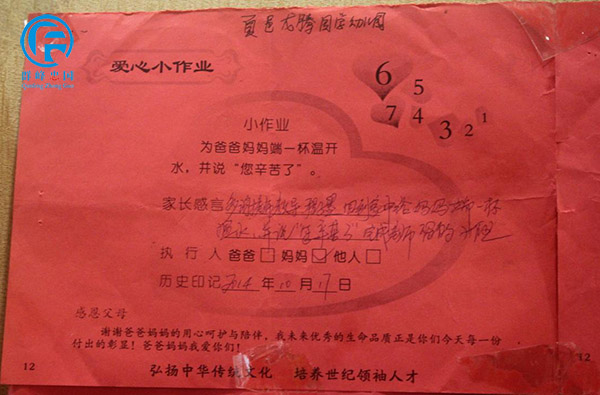 夏邑龙腾国学幼儿园
爱心小作业
6 5
7 4 3 2 1
小作业
为爸爸妈妈端一杯温开
水,并说“您辛苦了”。
家长感言 回到家中给爸妈端一杯
温水,并说"您辛苦了"完成老师
执行人 爸爸□ 妈妈☑ 他人□
历史印记 2014 年 10 月 17 日
感恩父母
谢谢爸爸妈妈的用心呵护与陪伴,我未来优秀的生命品质正是你们今天每一份
付出的彰显!爸爸妈妈我爱你们!
12
12
弘扬中华传统文化 培养世纪领袖人才